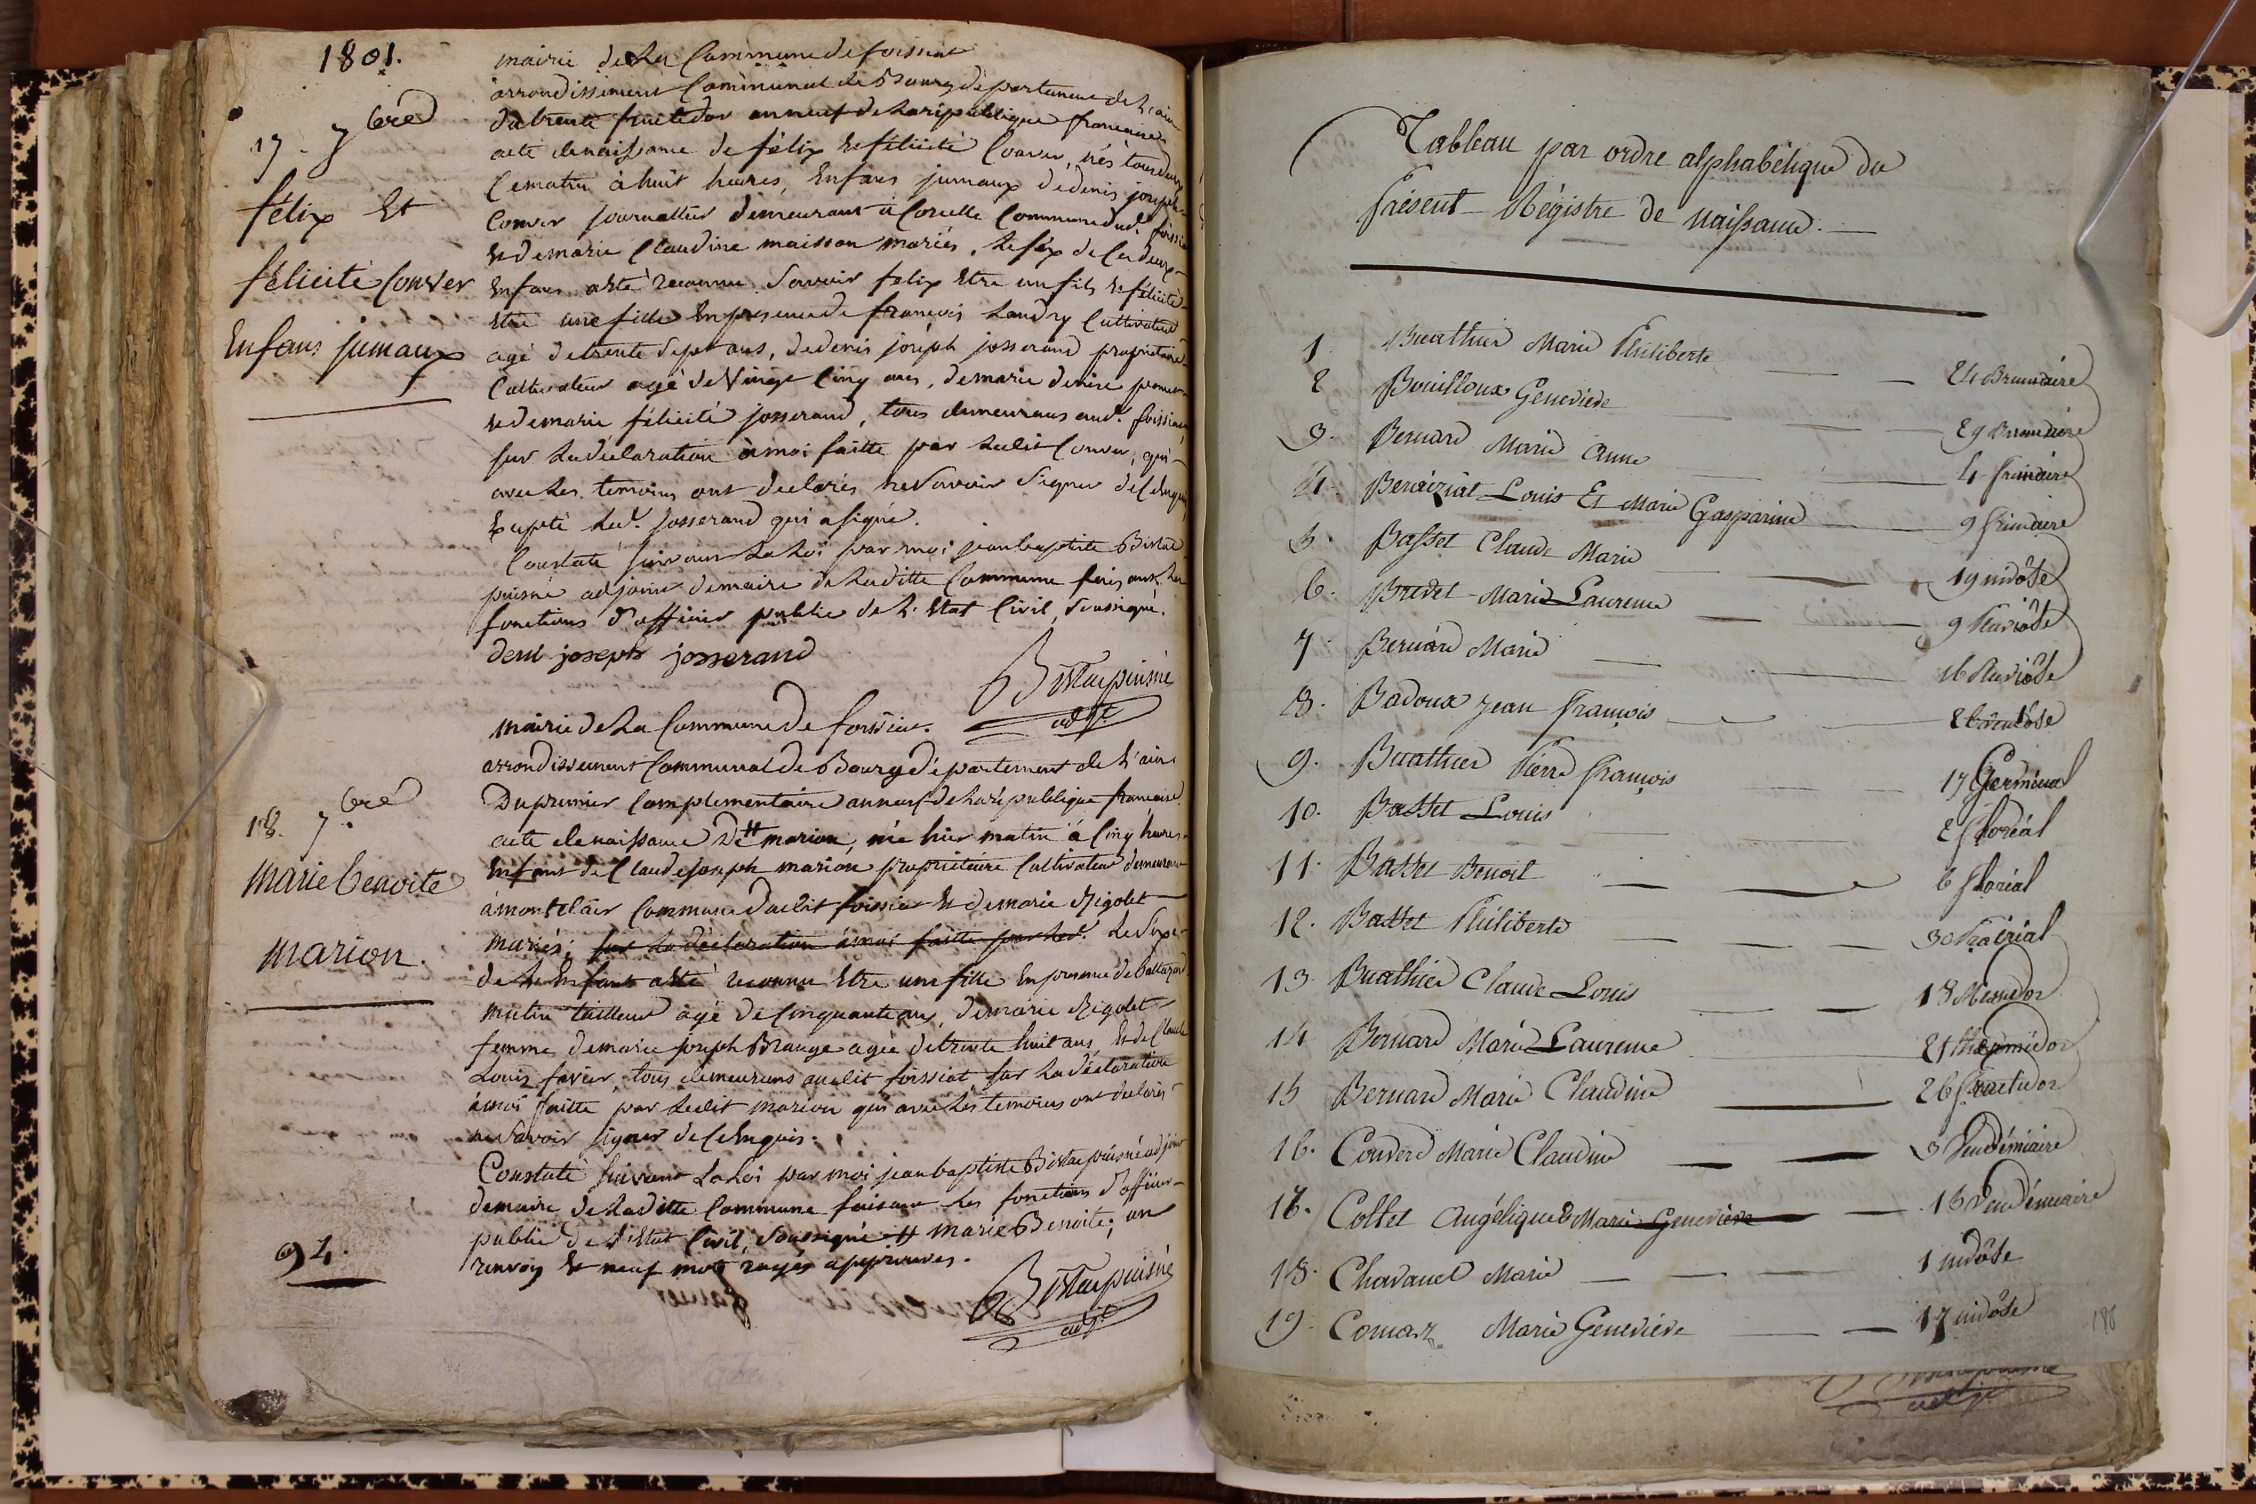 1801.
17. 7bre
félix Et
félicité Conver
Enfans jumaux
mairie de La Commune de foissiat
arrondissement Communal de Bourg département de L'ain
du trente fructidor an neuf de La république francaise
acte de naissance de félix et félicité Conver, nés tous deux
Cematin à huit heures, Enfans jumaux de denis joseph
Conver journallier demeurant à Corcelle Commune dud. foissiat
et demarie Claudine maisson mariés. Le séx de Ces deux
Enfans a été reconnu. Savoir felix Etre un fils et félicité
Etre une fille En presence de francois Landry Cultivateur
agé de trente Sept ans, de denis joseph josserand propriétaire
Cultivateur agé de Vingt Cinq ans, de marie denise
et de marie félicité josserand, tous demeurans aud. foissiat
sur La déclaration à moi faitte par Ledit Conver, qui
avec Les temoins ont declarés ne Savoir Signer de Ce Enquis
Expté Led. Josserand qui a signé.
Constaté suivant La Loi par moi jean baptiste
puisné adjoint demaire de Laditte Commune faisant Les
fonctions d'officier public de L'Etat Civil, Soussigné.
deni joseph josserand
puisné
adjt
18. 7bre
Marie benoite
marion.
94.
mairie de La Commune de foissiat.
arrondissement Communal de Bourg département de L'ain
Du premier Complémentaire an neuf de La république francaise
acte de naissance De # marion, née hier matin à Cinq heures
Enfant de Claude joseph marion propriétaire Cultivateur demeurant
à montclair Commune dudit foissiat Et demarie Rigolet
mariés; sur La déclaration à moi faitte par Led. Le Sexe
de L'Enfant a été reconnu Etre une fille En presence de baltazard
mutin tailleur agé de Cinquante ans, de marie Rigolet
femme demarie joseph Brange agée de trente huit ans, Et de Claude
Louis favier, tous demeurans audit foissiat, sur La déclaration
à moi faitte par Ledit marion qui avec Les temoins ont declarés
ne Savoir signer de Ce Enquis.
Constaté suivant La Loi par moi jean baptiste puisné adjoint
demaire de Laditte Commune faisant Les fonctions d'officier
public de L'Etat Civil, Soussigné # marie Benoite; un
renvoy Et neuf mots rayés approuvés.
puisné
adjt
Tableau par ordre alphabétique du
Présent Régistre de Naissance.
1 Buathier Marie Philiberte 24 Brumaire
2 Bouilloux Geneviève 29 Brumaire
3. Bernard Marie Anne 4 frimaire
4. Benaiziat Louis Et Marie Gasparine 9 frimaire
5. Basset Claude Marie 19 nivôse
6. Bredet Marie Laurence 9 Pluviôse
7. Bernard Marie 16 Pluviôse
8. Badoux Jean François Ventôse
9. Buathier Pierre François 17 Germinal
10. Basset Louis 2 floréal
11. Basset Benoit 6 floréal
12. Basset Philiberte 30 Prairial
13 Buathier Claude Louis 18 Messidor
14 Bernard Marie Laurence 21 thermidor
15 Bernard Marie Claudine 26 fructidor
16. Conver Marie Claudine 3 Vendémiaire
17. Collet Angélique Marie Geneviève 15 Vendémiaire
18. Chavanel Marie 1 nivôse
19. Comaz Marie Geneviève 17 nivôse
186